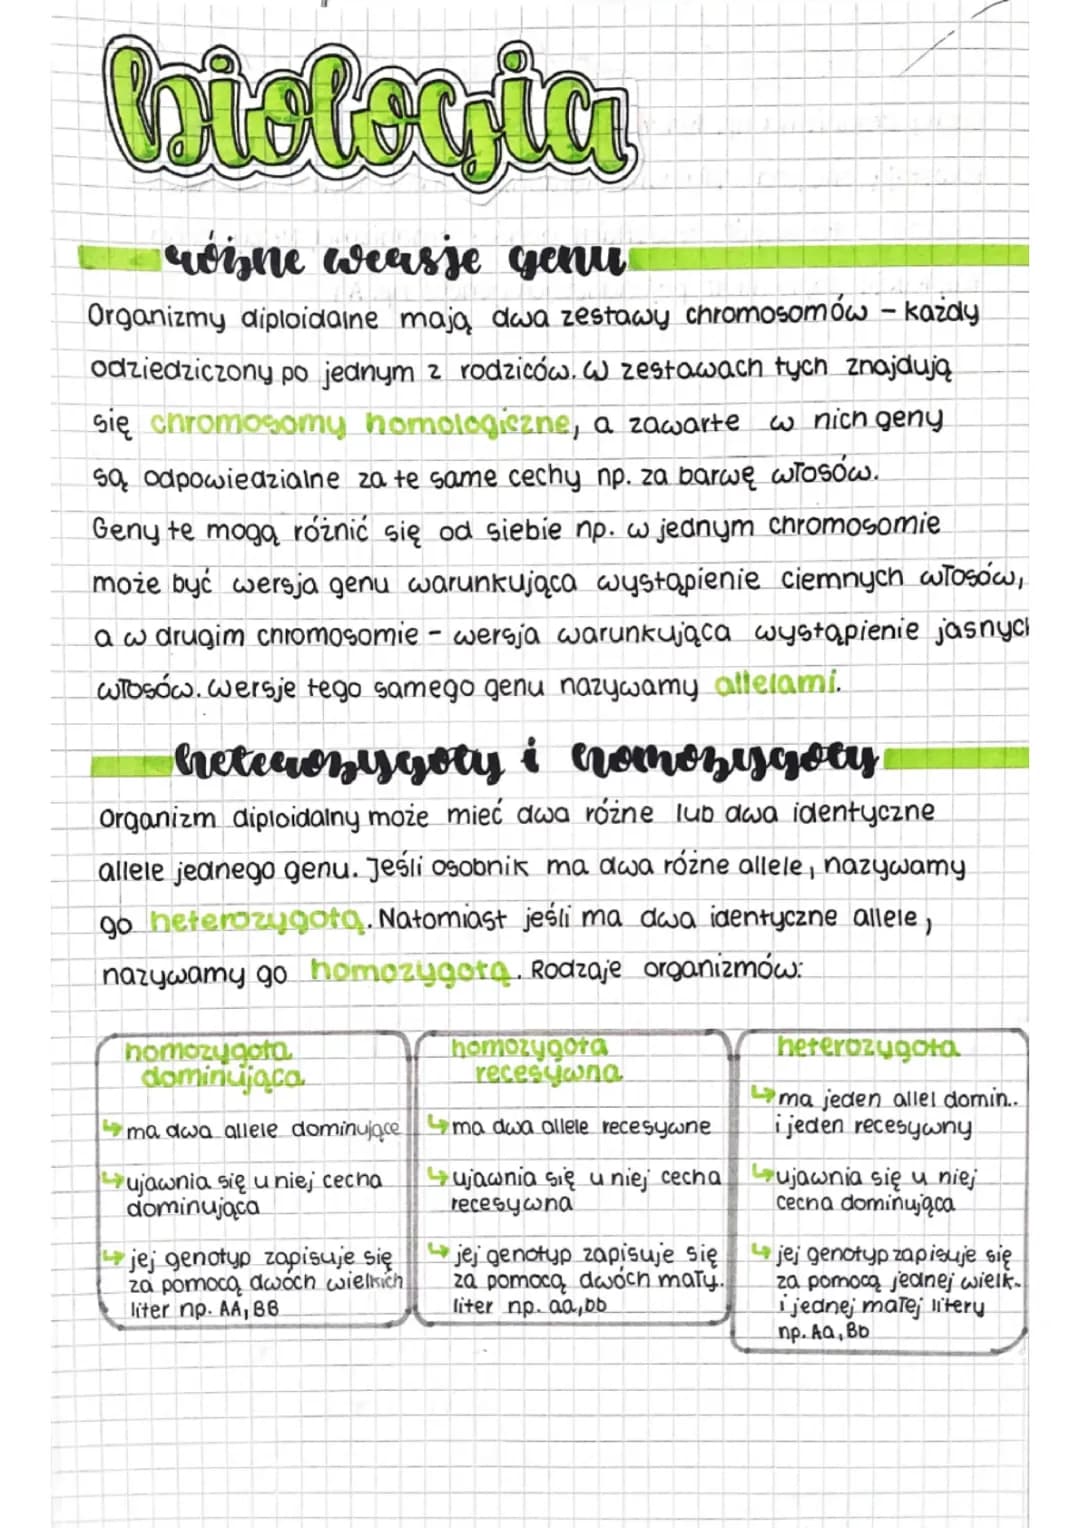 biologia
różne wersje genu
Organizmy diploidalne mają dwa zestawy chromosomów – każdy
odziedziczony po jednym z rodziców. W zestawach tych znajdują
się chromosomy homologiczne, a zawarte w nich geny
są odpowiedzialne za te same cechy np. za barwę włosów.
Geny te mogą różnić się od siebie np. w jednym chromosomie
może być wersja genu warunkująca wystąpienie ciemnych włosów,
a w drugim chromosomie – wersja warunkująca wystąpienie jasnych
włosów. Wersje tego samego genu nazywamy allelami.
heterozygoty i homozygoty
Organizm diploidalny może mieć dwa różne lub dwa identyczne
allele jednego genu. Jeśli osobnik ma dwa różne allele, nazywamy
go heterozygotą. Natomiast jeśli ma dwa identyczne allele,
nazywamy go homozygotą. Rodzaje organizmów:
homozygota
dominująca
↳ ma dwa allele dominujące
↳ ujawnia się u niej cecha
dominująca
↳ jej genotyp zapisuje się
za pomocą dwóch wielkich
liter np. AA, BB
homozygota
recesywna
↳ ma dwa allele recesywne
↳ ujawnia się u niej cecha
recesywna
↳ jej genotyp zapisuje się
za pomocą dwóch mały.
liter np. aa, bb
heterozygota
↳ ma jeden allel domin..
i jeden recesywny
↳ ujawnia się u niej
cecha dominująca
↳ jej genotyp zapisuje się
za pomocą jednej wielk.
i jednej małej litery
np. Aa, Bb